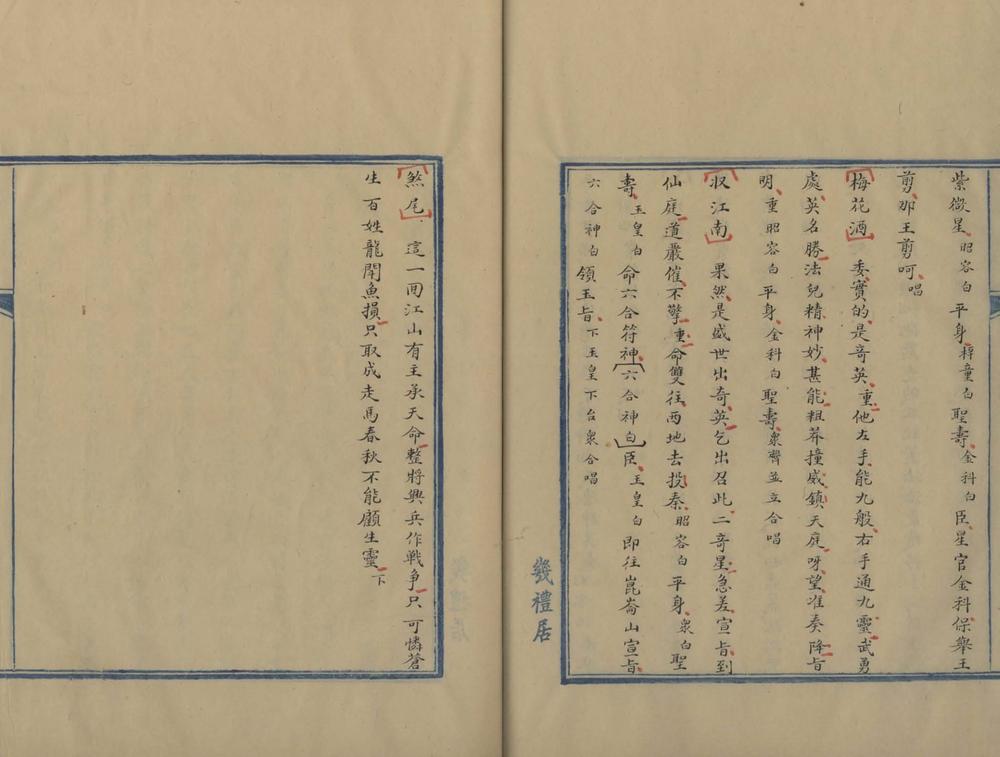 紫微星昭容白平身梓童白聖壽金科白臣星官金科保舉王
剪那王剪呵唱
梅花酒委實的是奇英重他左手能九般右手通九靈武勇
處英名勝法兒精神妙甚能粗莽撞威鎮天庭呀望准奏降旨
明重昭容白平身金科白聖壽衆齊並立合唱
収江南果然是盛世出奇英乞出召此二奇星急差宣旨到
仙庭道嚴催不擎重命雙往西地去投秦昭容白平身衆白聖
壽玉皇白命六合符神六合神白臣玉皇白即往崑崙山宣旨
六合神白領玉旨下玉皇下台衆合唱
幾禮居
煞尾這一囬江山有主承天命整將興兵作戰爭只可憐蒼
生百姓龍閗魚損只取成走馬春秋不能顧生靈下